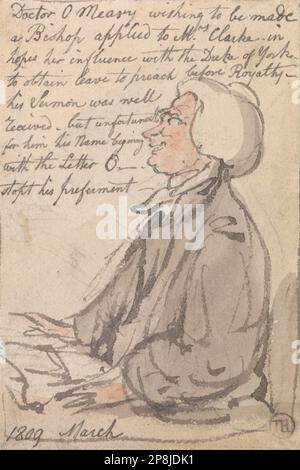 Doctor O Meary wishing to be made
a Bishop applied to Mrs Clarke — in
hopes her influence with the Duke of York
to obtain leave to preach before Royalty —
his Sermon was well
received. but unfortunately
for him his Name begining
with the Letter O —.
stopt his preferment
1809 March
TH
alamy
Image ID: 2P8JDK1
www.alamy.com